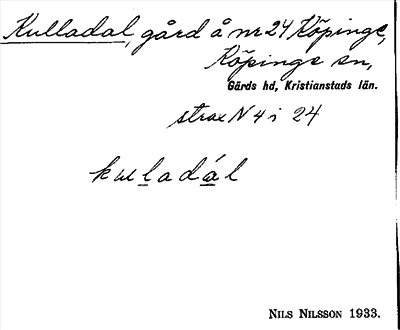 Kulladal, gård å nr 24 Köpinge,
Köpinge sn,
Gärds hd, Kristianstads län.
strax N 4 i 24
kulladál
NILS NILSSON 1933.